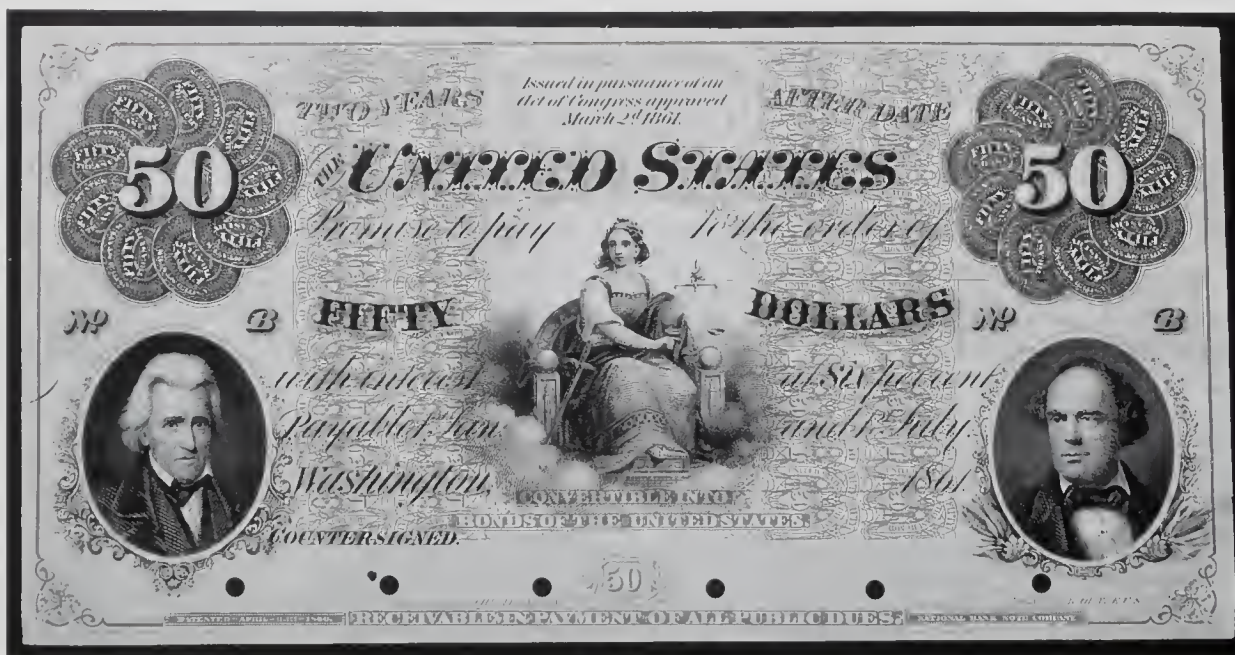 Issued in pursuance of an
Act of Congress approved
March 2d 1861.
TWO YEARS AFTER DATE
50 THE UNITED STATES 50
Promise to pay to the order of
FIFTY DOLLARS
No B No B
with interest at Six per cent
Payable 1st Jan and 1st July
Washington, 1861
CONVERTIBLE INTO
BONDS OF THE UNITED STATES.
COUNTERSIGNED.
50
RECEIVABLE IN PAYMENT OF ALL PUBLIC DUES.
NATIONAL BANK NOTE COMPANY